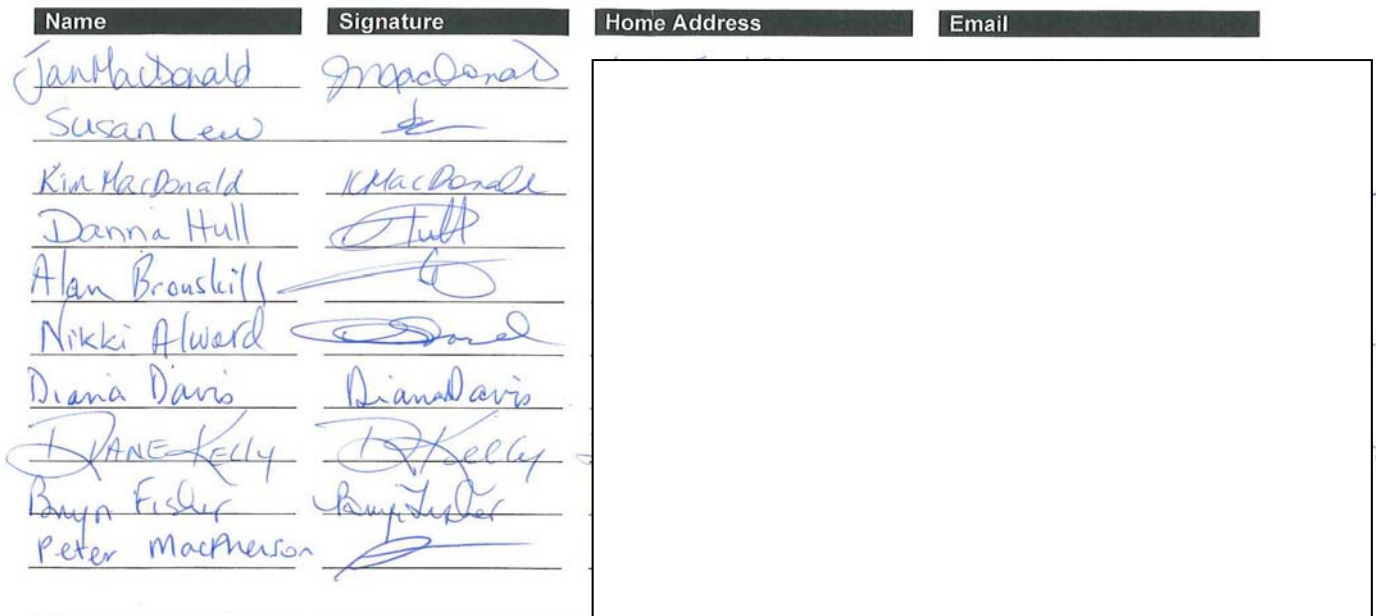 Name Signature Home Address Email
Jan MacDonald JMacDonald
Susan Lew
Kim MacDonald KMacDonald
Danna Hull
Alan Brouskill
Nikki Alward
Diana Davis Diana Davis
DIANE KELLY D Kelly
Bryn Fisher Bryn Fisher
Peter MacPherson